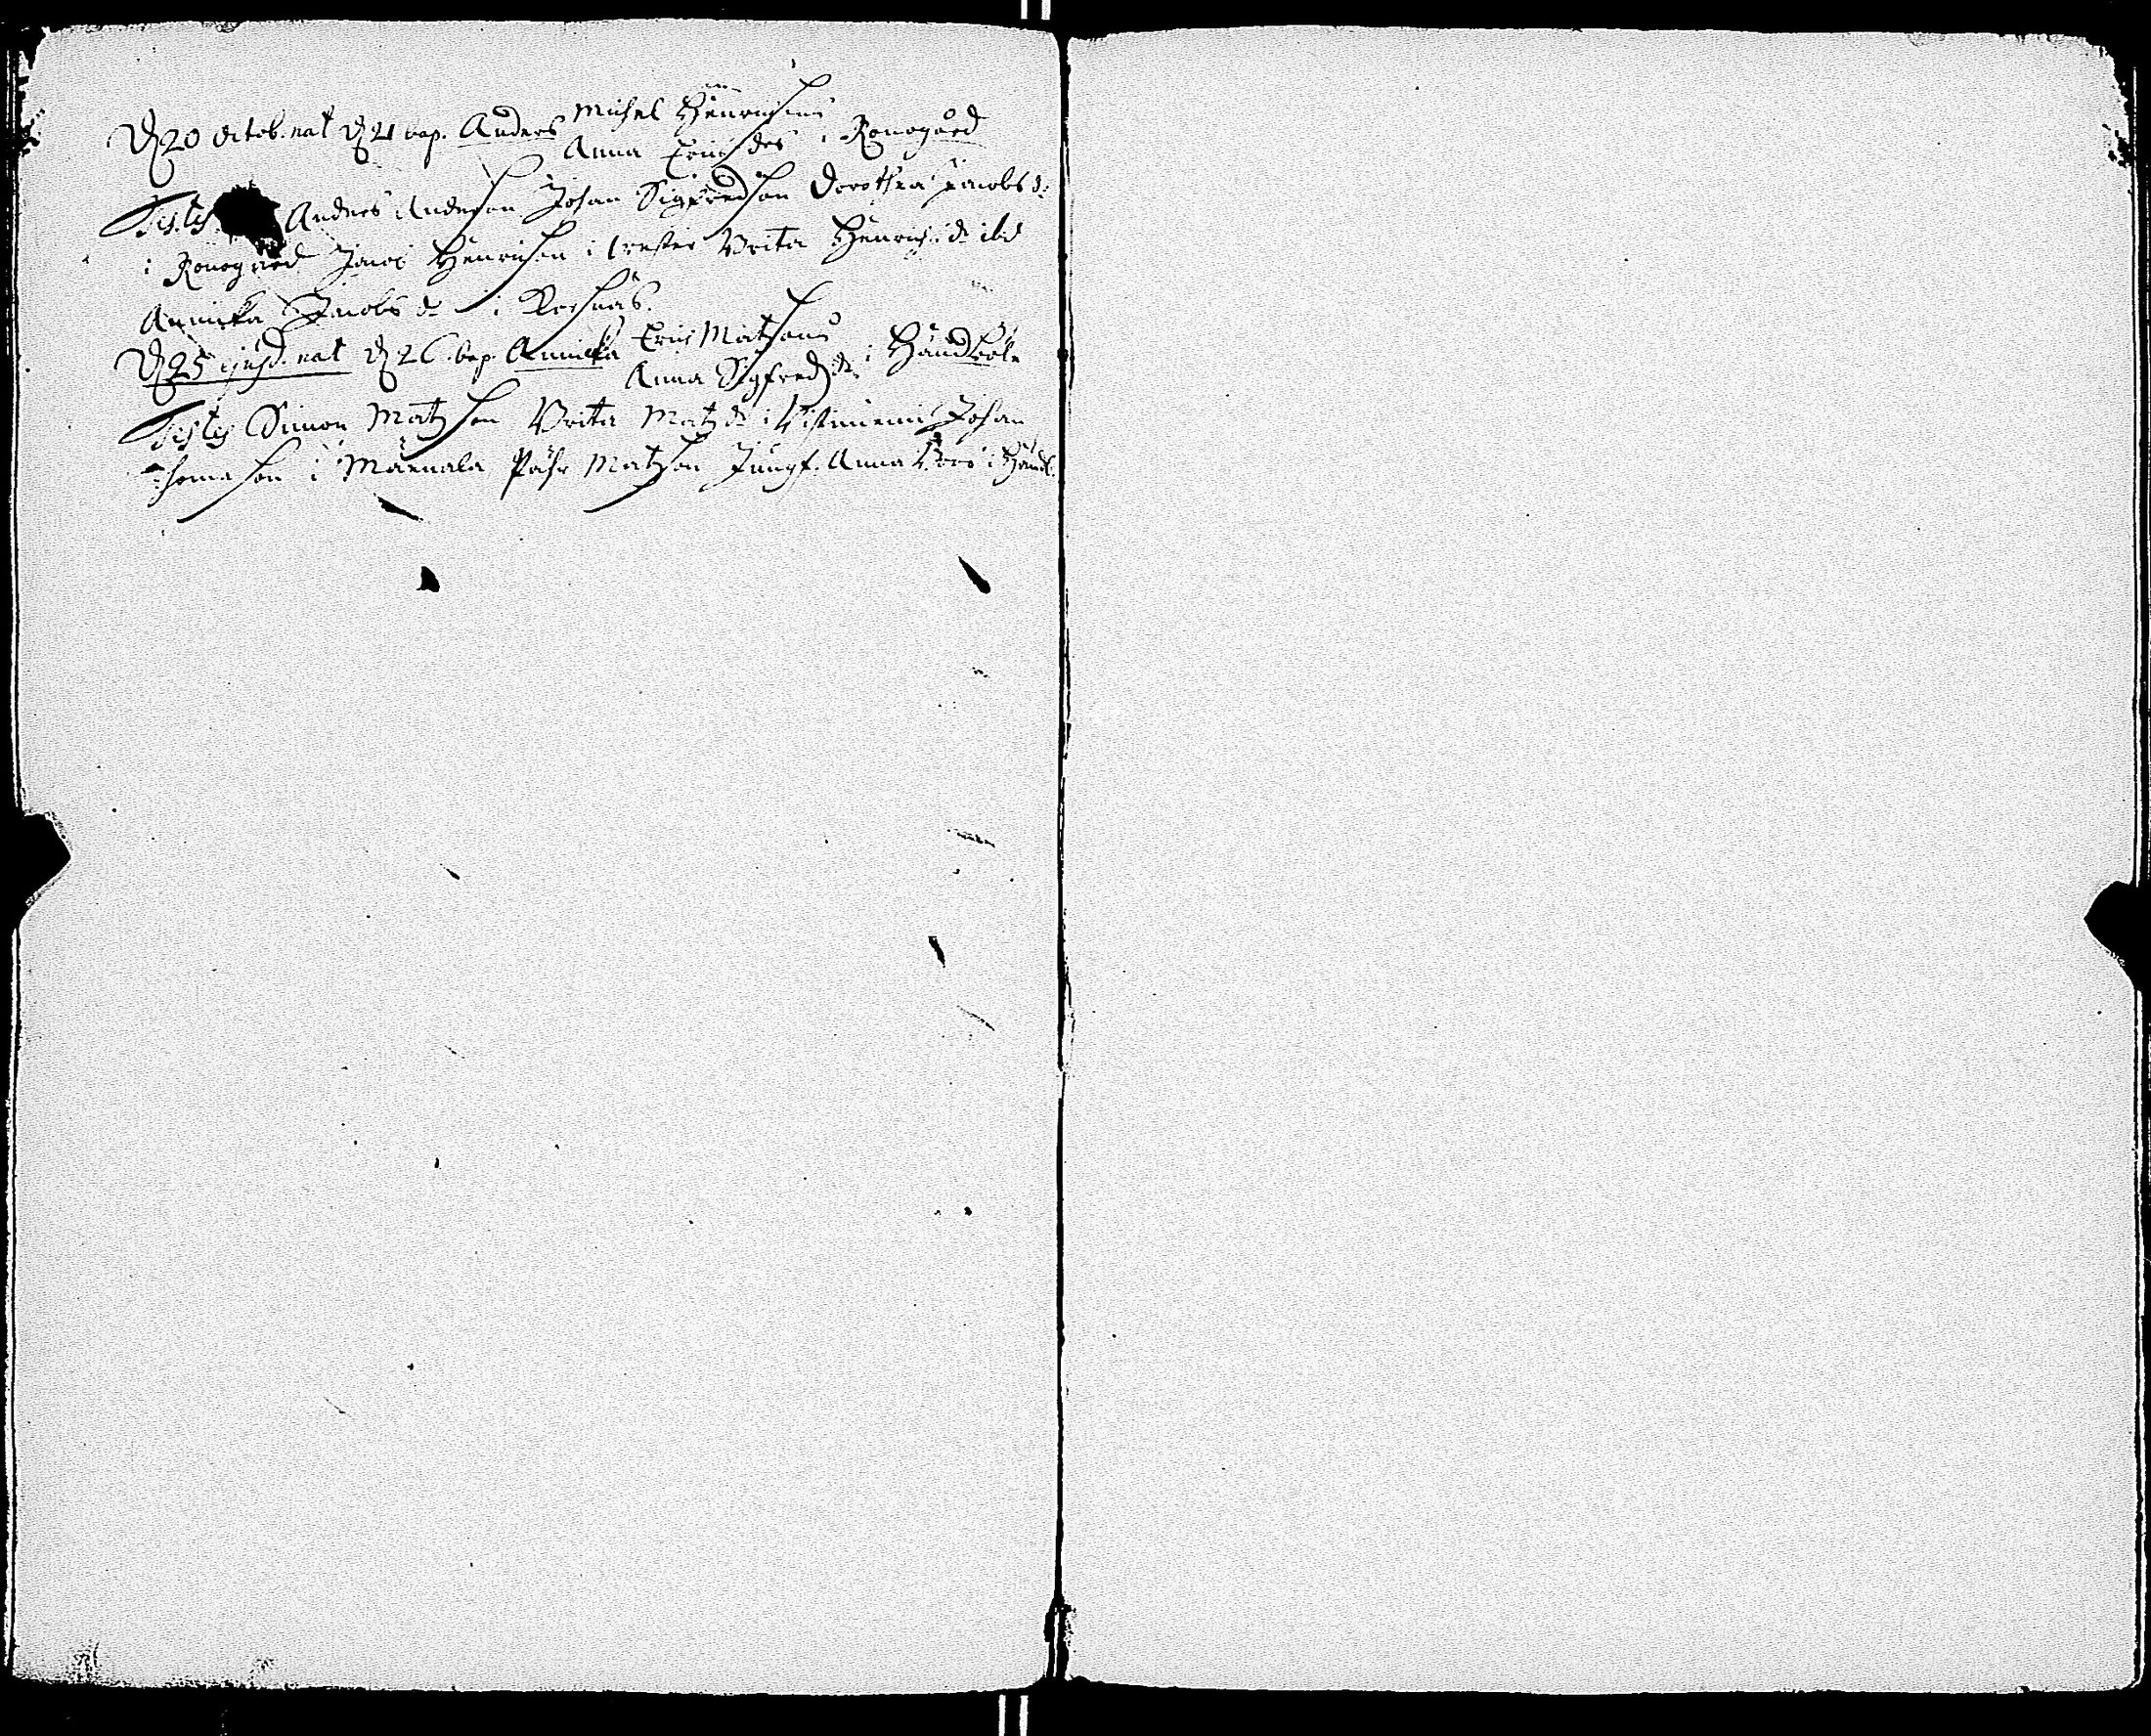 D 20 octob. nat D 21 bap. Anders Michel Hinrichsons
Anna Erichsdrs i Konogård
Testes Anders Anderson Johan Sigfredson Dorothea Jacobs dr
i Konogård Hinrichson i Brita Hinrichs dr ibid
Annicka Jacobs dr i
D 25 ejusd. nat D 26 bap. Annicka Erich Matzsons
Anna Sigfreds dr i Handböle
Testes Simon Matzson Brita Matz dr i Johan
Thomason i Marnala Påhr Matzson Jungf. Anna i